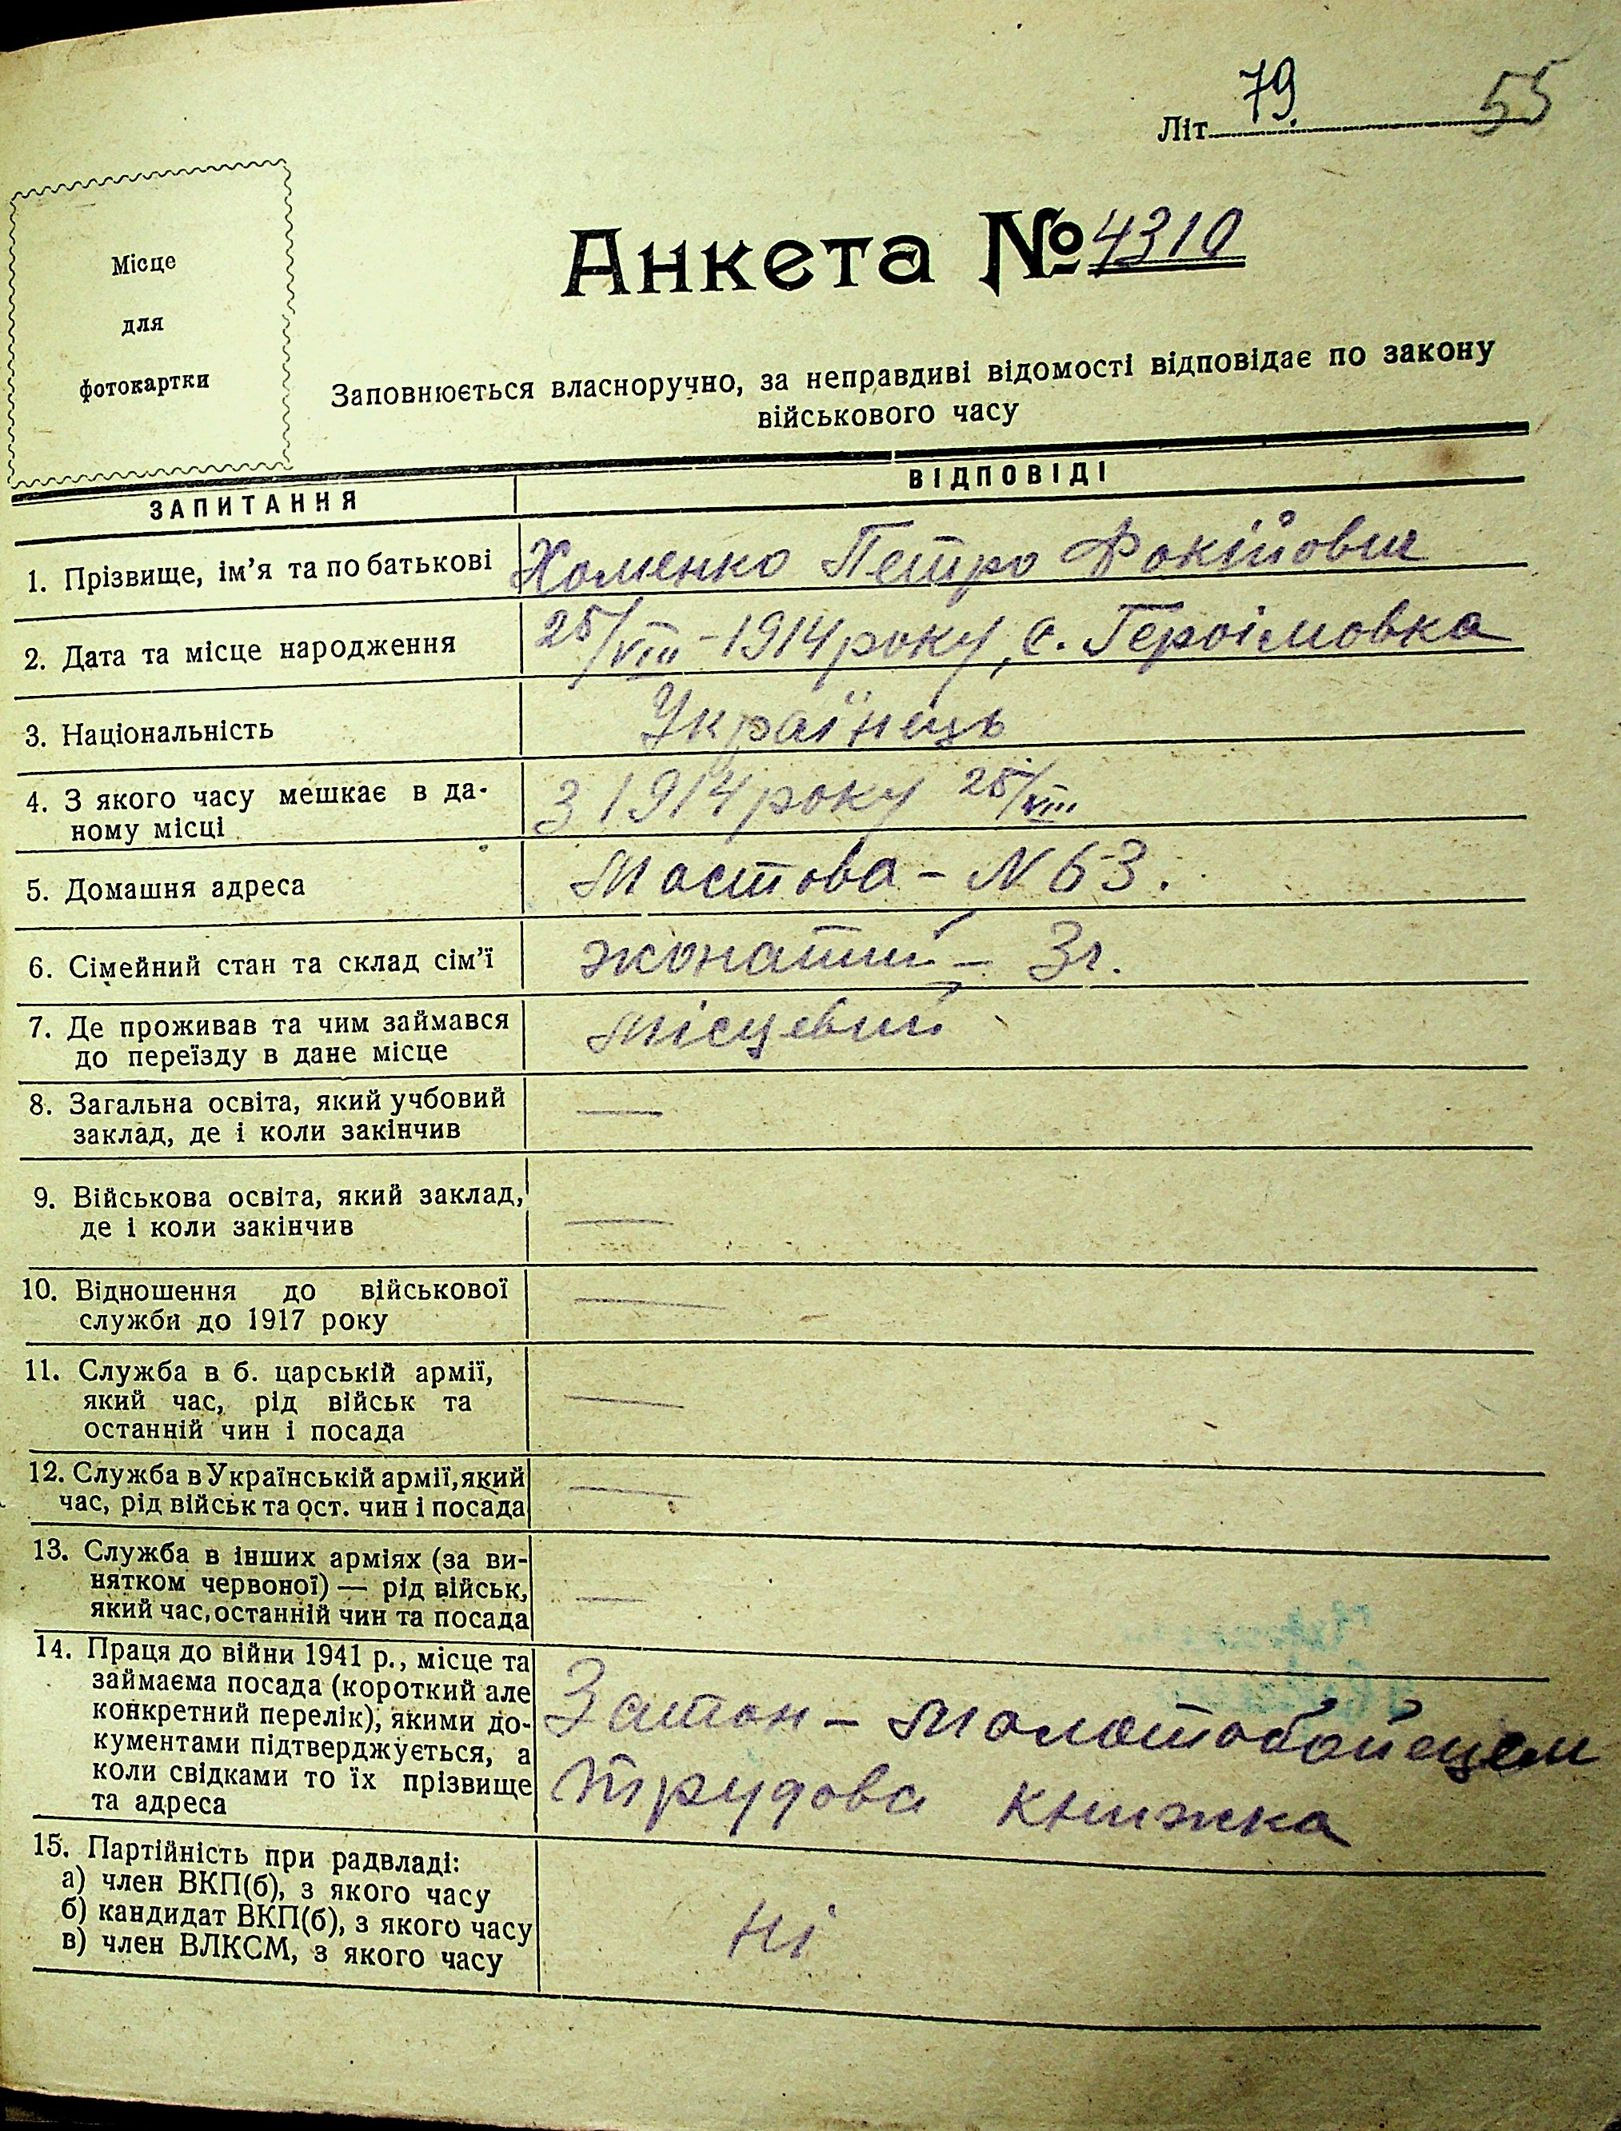 79. 55
Літ
Місце
для
фотокартки
Анкета № 4310
Заповнюється власноручно, за неправдиві відомості відповідає по закону
військового часу
ЗАПИТАННЯ ВІДПОВІДІ
1. Прізвище, ім'я та по батькові Хоменко Петро Фокійович
2. Дата та місце народження 25/VIII – 1914 року, с. Героімовка
3. Національність Українець
4. З якого часу мешкає в да- З 1914 року 25/VIII
ному місці
5. Домашня адреса Мостова – N 63.
6. Сімейний стан та склад сім'ї жонатий – 3 г.
7. Де проживав та чим займався місцевий
до переїзду в дане місце
8. Загальна освіта, який учбовий —
заклад, де і коли закінчив
9. Військова освіта, який заклад,
де і коли закінчив —
10. Відношення до військової —
служби до 1917 року
11. Служба в б. царській армії,
який час, рід військ та —
останній чин і посада
12. Служба в Українській армії, який —
час, рід військ та ост. чин і посада
13. Служба в інших арміях (за ви-
нятком червоної) — рід військ, —
який час, останній чин та посада
14. Праця до війни 1941 р., місце та
займаєма посада (короткий але Затон – молотобойецем
конкретний перелік), якими до-
кументами підтверджується, а трудова книжка
коли свідками то їх прізвище
та адреса
15. Партійність при радвладі:
а) член ВКП(б), з якого часу
б) кандидат ВКП(б), з якого часу ні
в) член ВЛКСМ, з якого часу